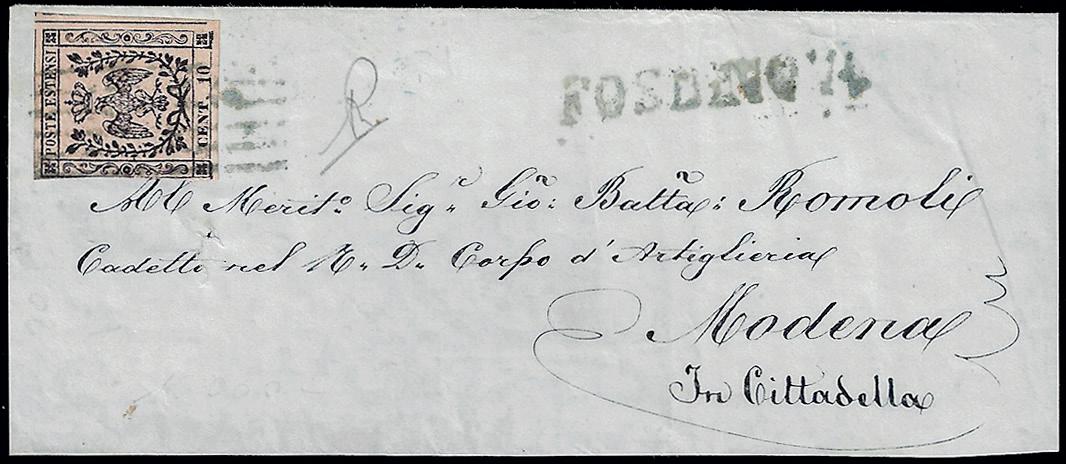 POSTE ESTENSI
CENT. 10
FOSDINOVO
R.
All Merito. Sigr. Gioñ: Battã: Romoli
Cadetto nel R. D. Corpo d'Artiglieria
Modena
In Cittadella